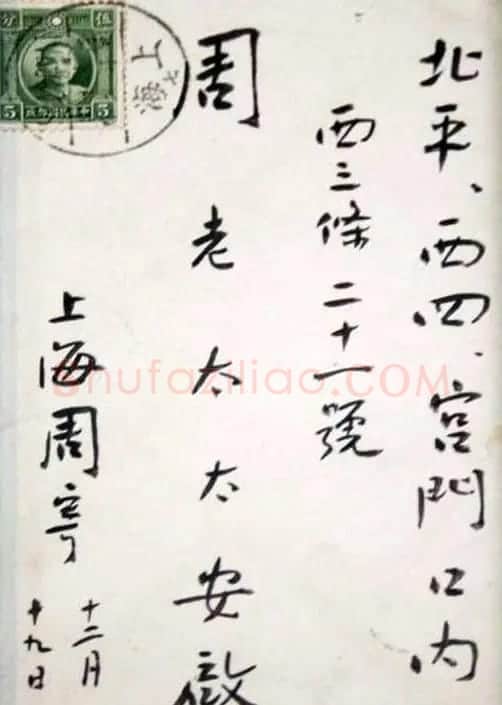 北平、西四、宮門口内
西三條二十一號
周老太太安啟
上海周寄
十二月
十九日
上海
伍分
5 5
Shufaziliao.COM